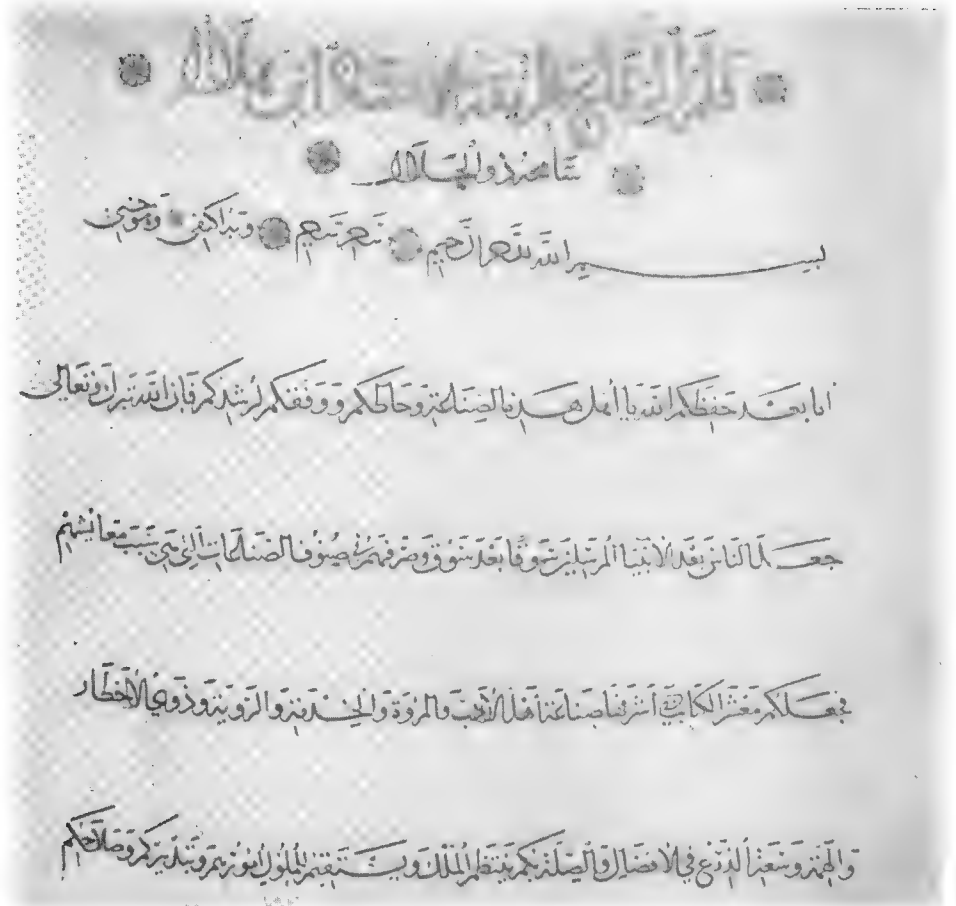 سامحه ذو الجلال
بسم الله الرحمن الرحيم
اما بعد حفظكم الله يا أهل هذه الصناعة وحاطكم ووفقكم لرشدكم فان الله تبرك وتعالى
جعل الناس بعد الانبيا المرسلين سوقا بعد سوق وصرفهم في صنوف الصناعات التي هي سبب معايشهم
فجعلكم معشر الكتاب في أشرفها صناعة أهل الأدب والمروة والروية وذوي الأخطار
والهمة وسعة الذرع في الافضال والصلة بكم ينتظم الملك ويستقيم للملوك أمورهم وبتدبيركم وصلاحكم